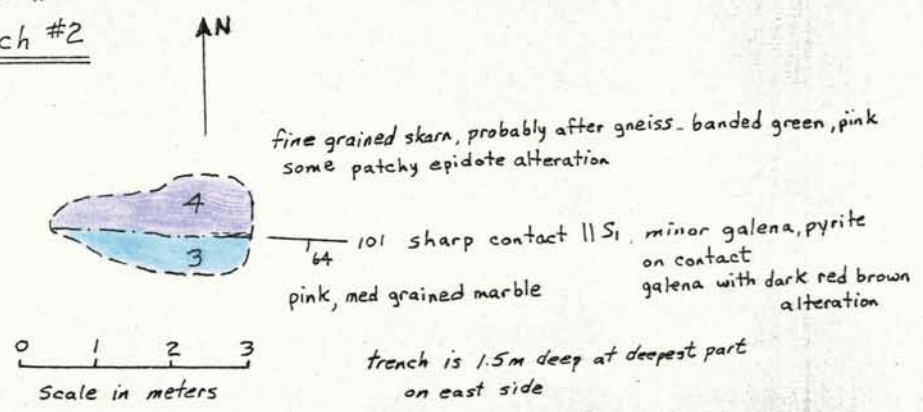 #2
N
fine grained skarn, probably after gneiss - banded green, pink
some patchy epidote alteration
4
3
101 sharp contact || S1. minor galena, pyrite
64
on contact
galena with dark red brown
alteration
pink, med grained marble
0 1 2 3
Scale in meters
trench is 1.5m deep at deepest part
on east side